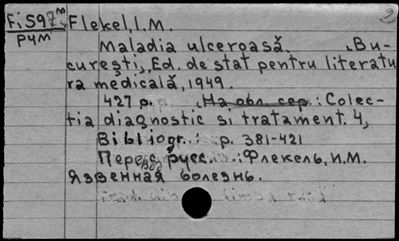 Fi597м Flekel, I.M.
рум
Maladia ulceroasă. „Bu-
curești„, Ed. de stat pentru literatu
ra medicală, 1949.
427 p. На обл. сер.: Colec-
tia diagnostic si tratament. 4,
Bibliogr.: p. 381-421
Перевод русс. : Флекель, И.М.
Язвенная болезнь.